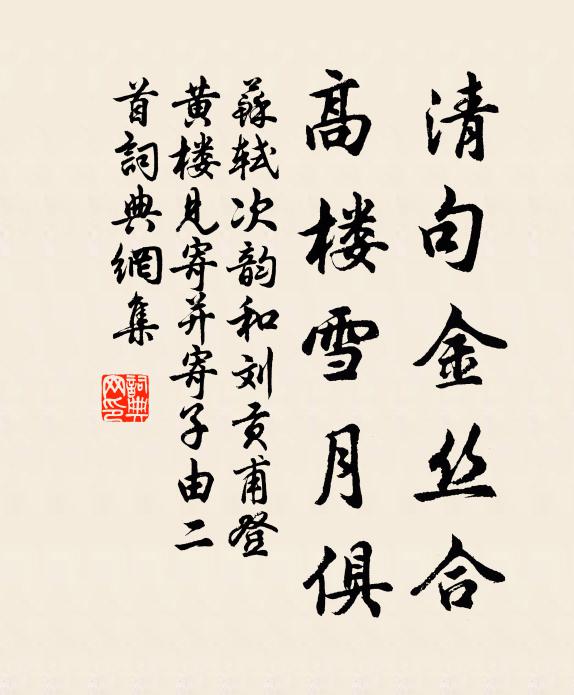 清句金丝合
高楼雪月俱
蘇軾次韵和刘贡甫登
黄楼见寄并寄子由二
首詞典網集
詞典
网印